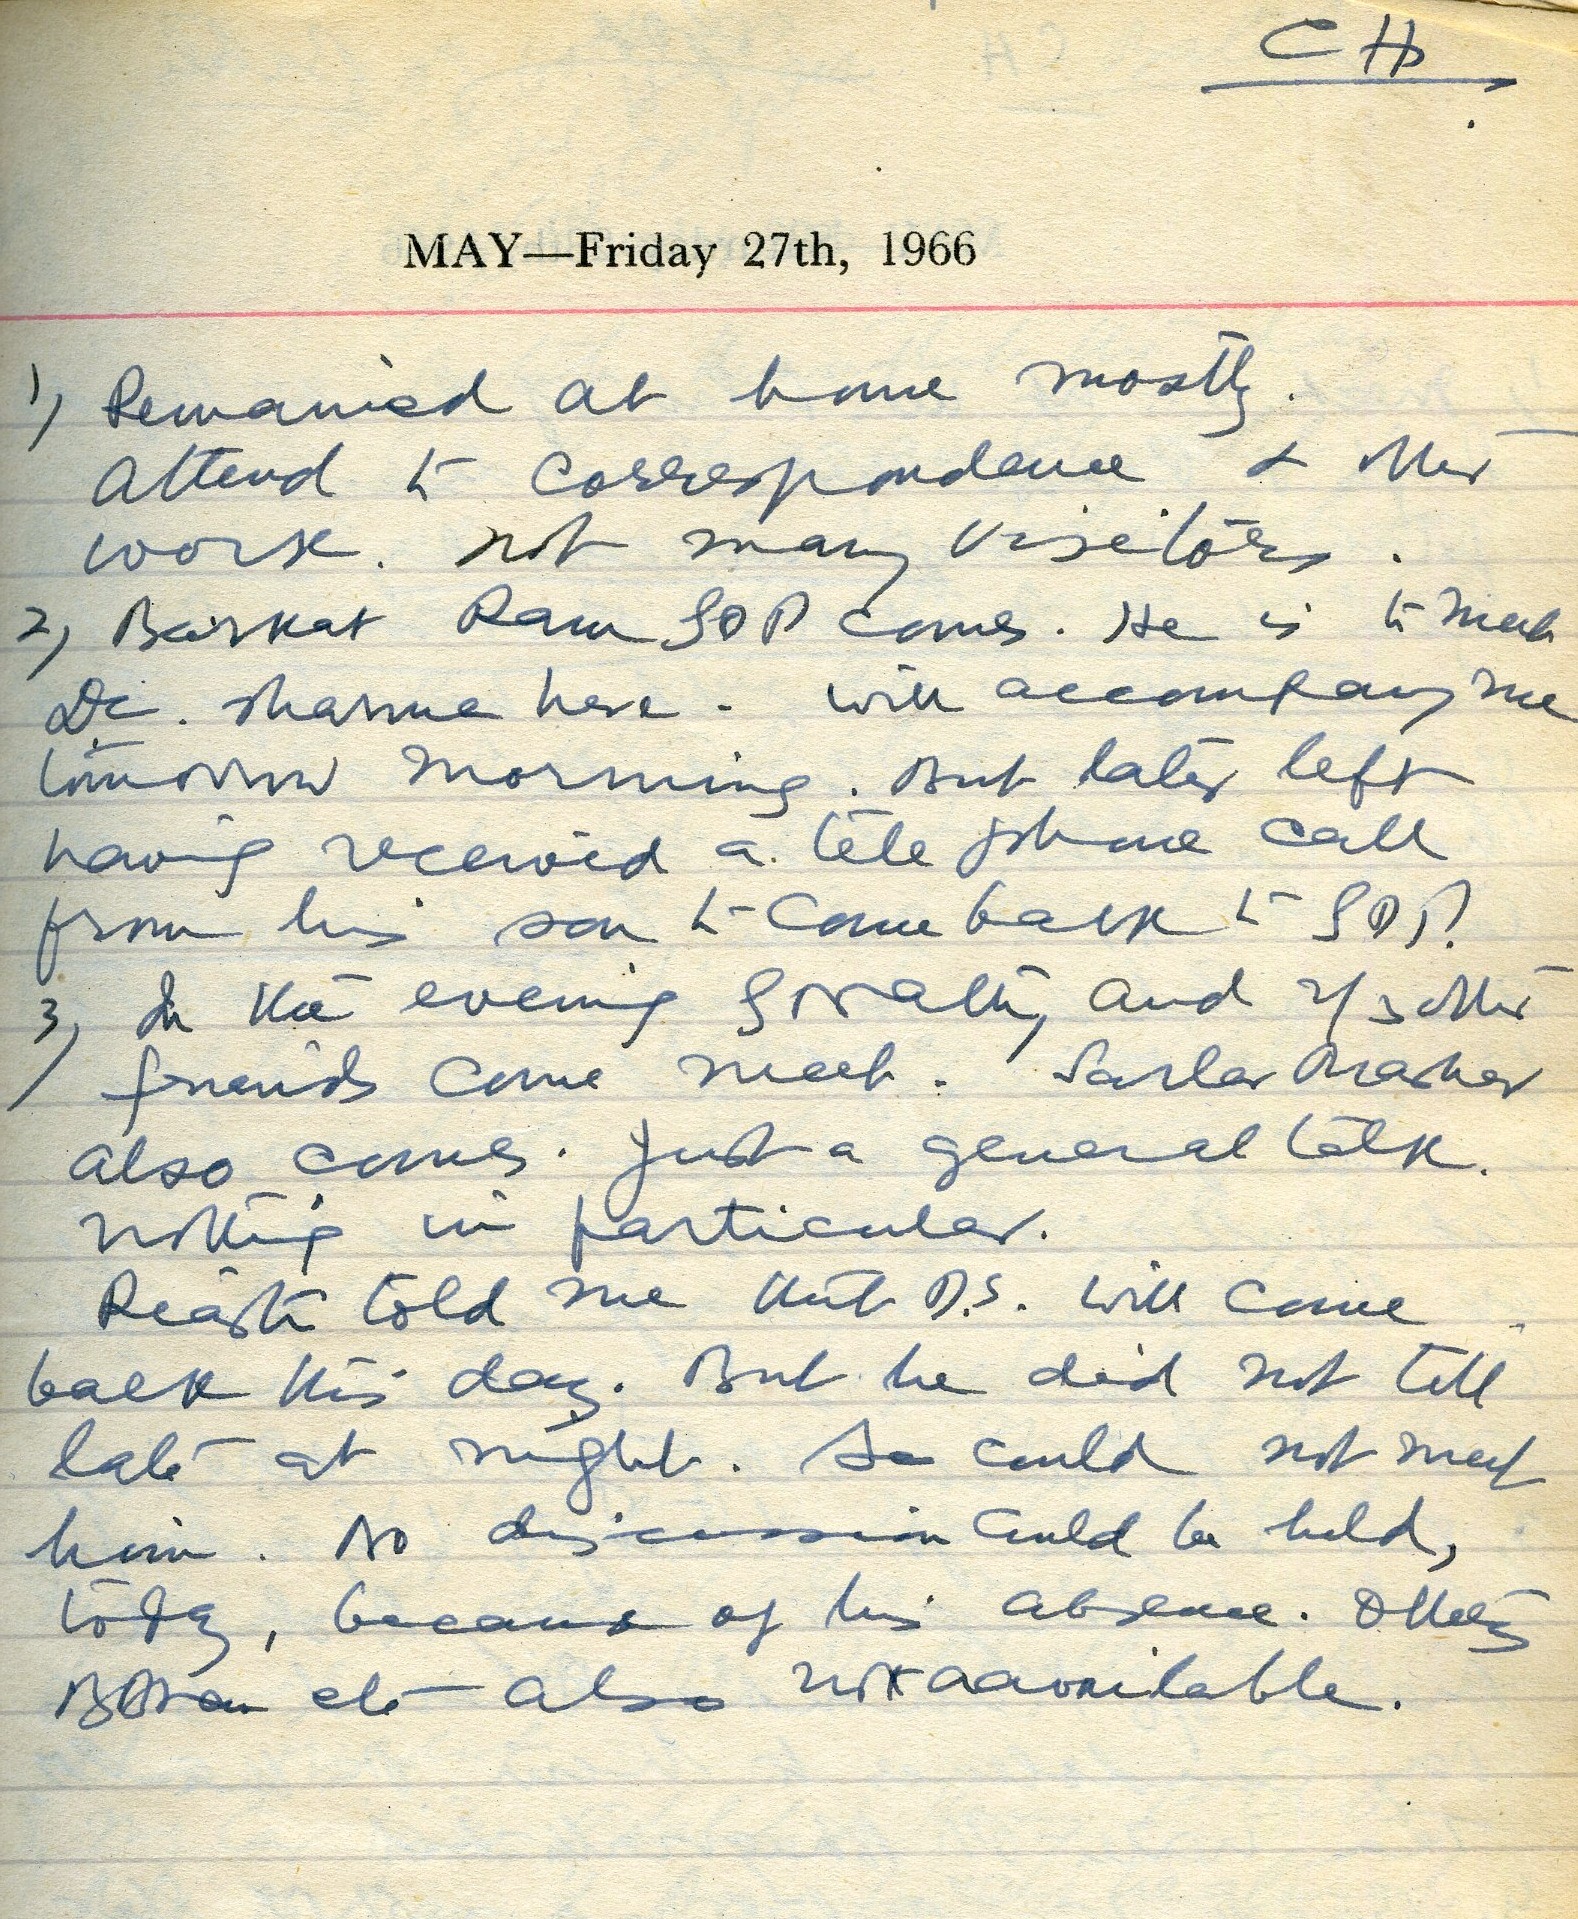 CH
MAY—Friday 27th, 1966
1) Remained at home mostly.
Attend to correspondence & other
work. Not many visitors.
2) Barkat Ram comes. He is to meet
Dr. Sharma here. Will accompany me
tomorrow morning. But later left
having received a telephone call
from his son to come back to
3) In the evening and 2/3 other
friends come meet. Sarla Prasher
also comes. Just a general talk.
Nothing in particular.
told me that D.S. will come
back this day. But he did not till
late at night. So could not meet
him. No discussion could be held,
today, because of his absence. Others
etc also not aavailable.